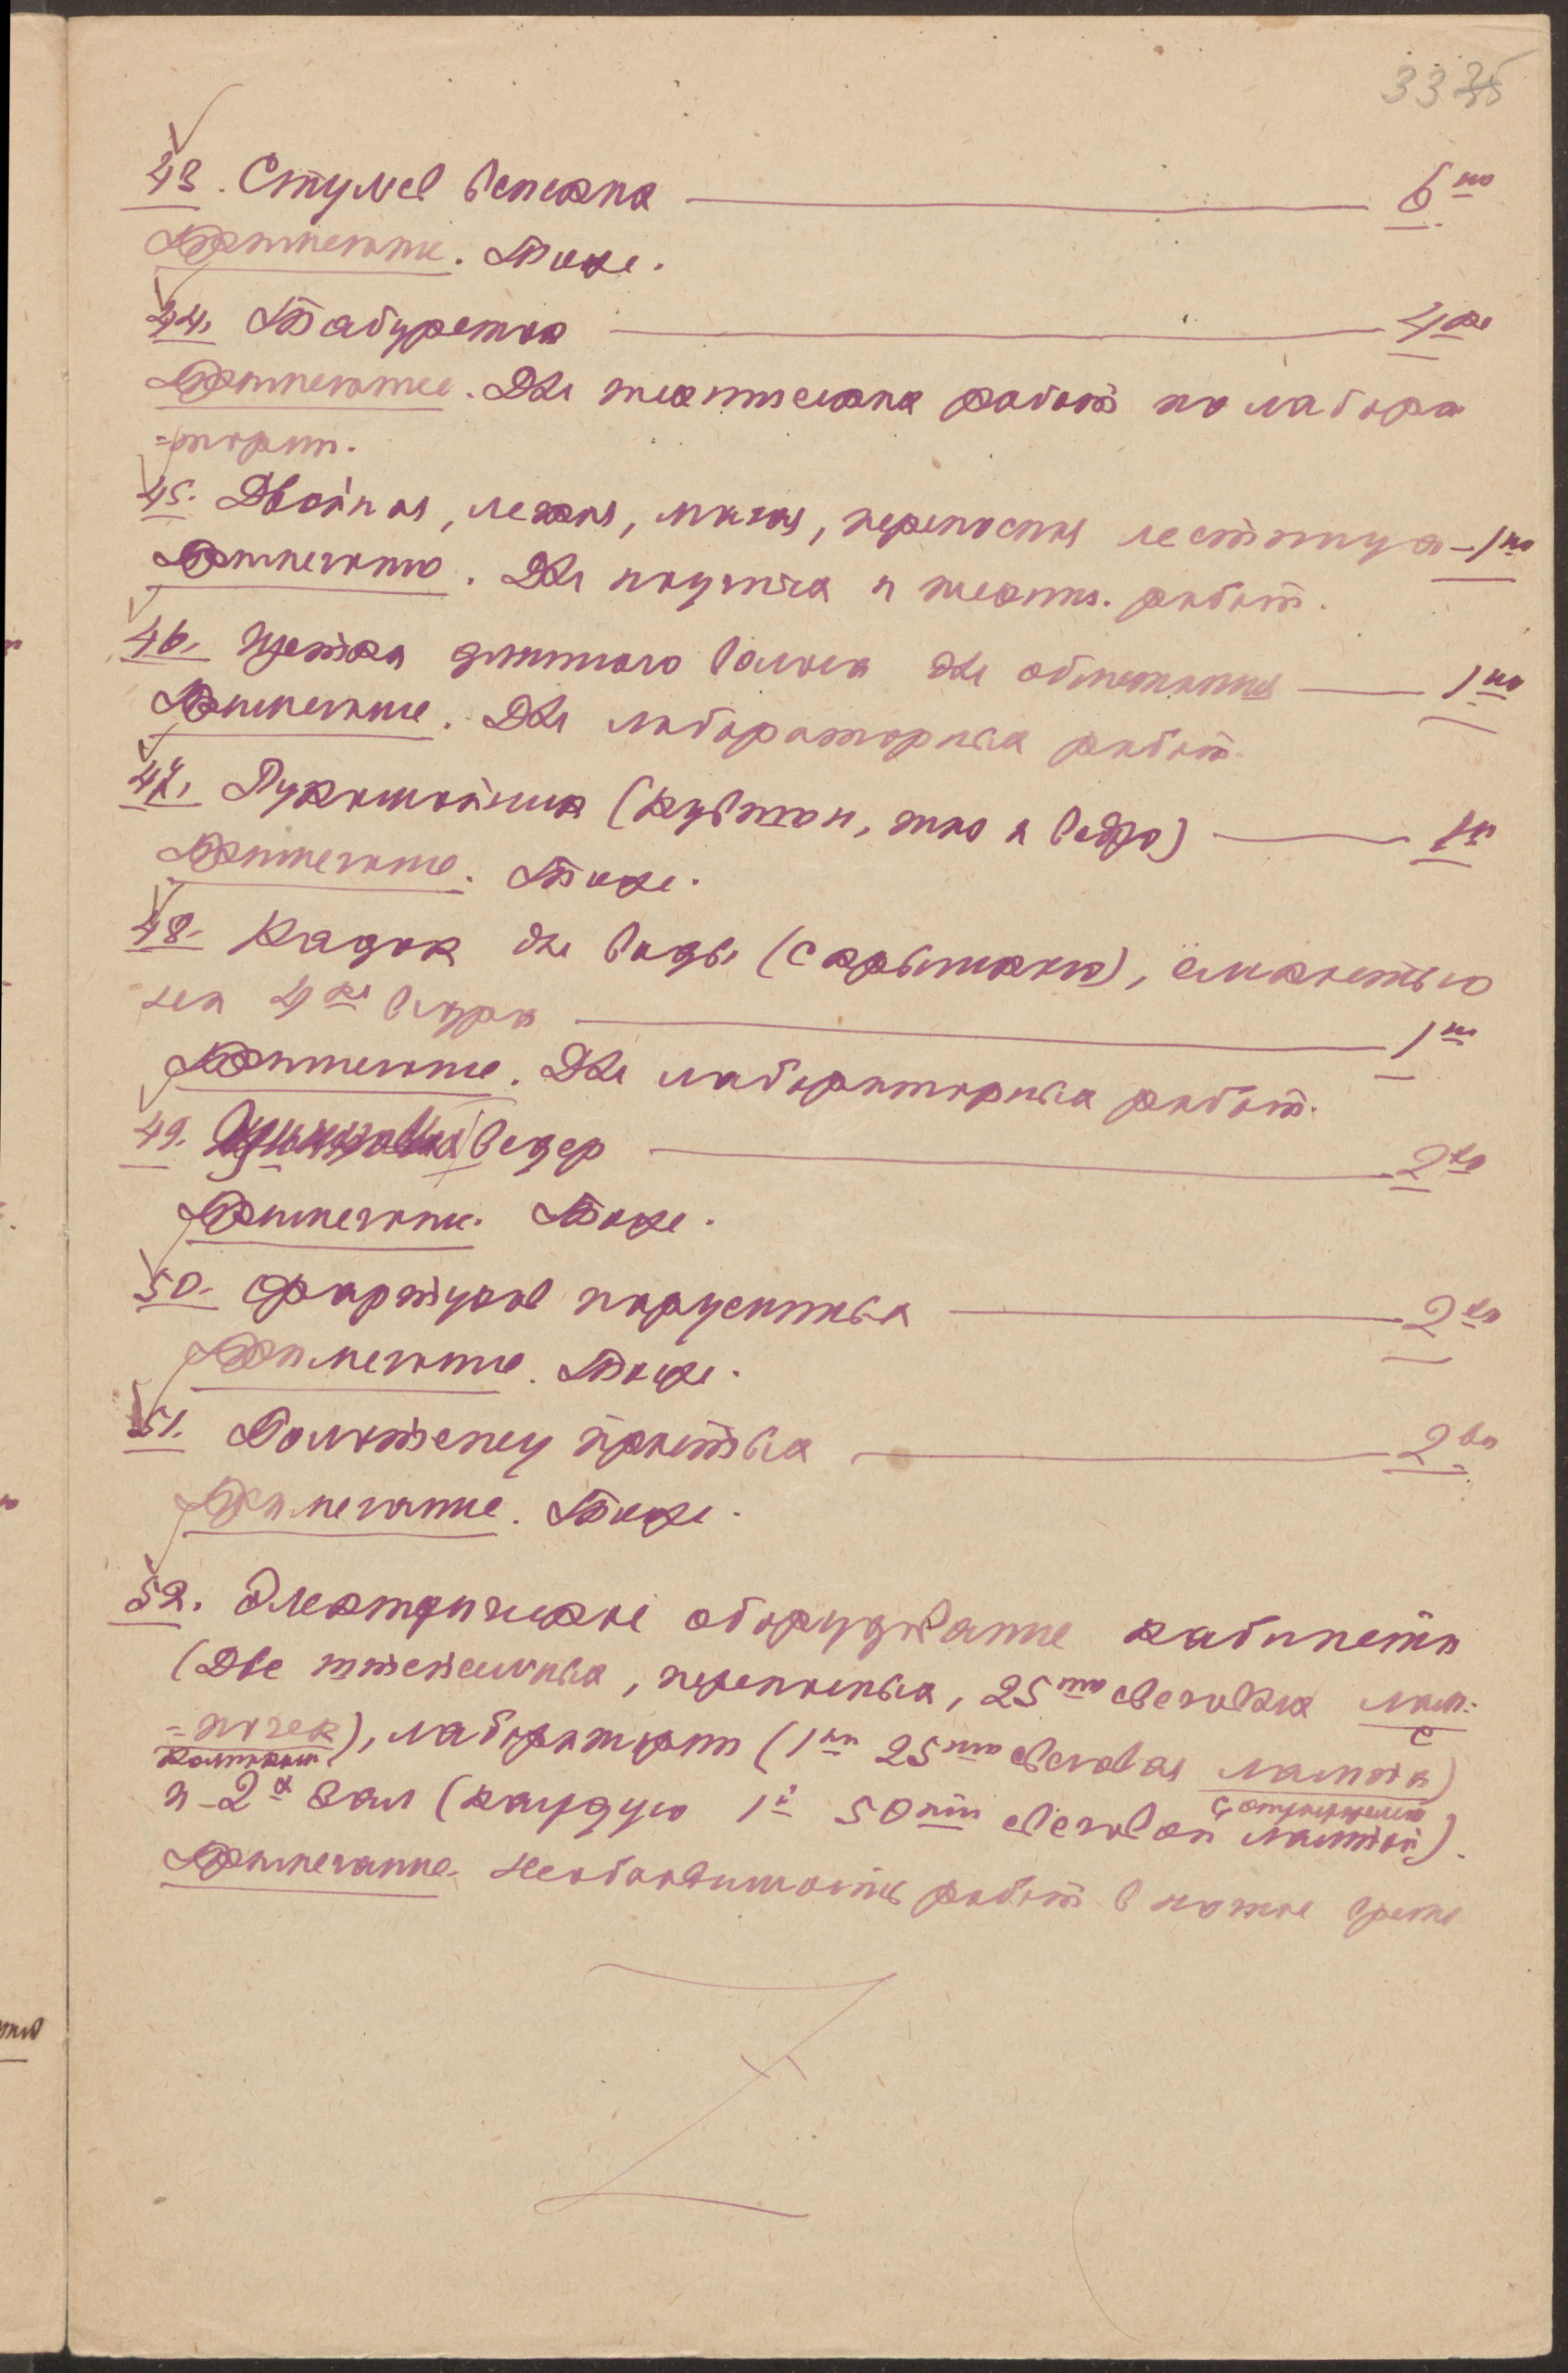 33 35
43. Стульев венских — 6ть
Примечание. Тоже.
44. Табуретки — 4ре
Примечание. Для технических работ по лабора
=тории.
45. Двойная, легкая, малая, переносная лестница — 1на
Примечание. Для научных и технич. работ.
46. Щетка длинного волоса для обметания — 1на
Примечание. Для лабораторных работ.
47. Рукомойник (кувшин, таз и ведро) — 1н
Примечание. Тоже.
48. Кадок для воды (с крышкою), ёмкостью
на 4ре ведра — 1н
Примечание. Для лабораторных работ.
49. ведер — 2ва
Примечание. Тоже.
50. Фартуков парусинных — 2ва
Примечание. Тоже.
51. Полотенец простых — 2ва
Примечание. Тоже.
52. Электрическое оборудование кабинета
(Две настольных, переносных, 25ти свечовых лам=
=почек), лаборатории (1на 25ти свечовая лампа)
и 2х зал (каждую 1й 50ти свечовой лампой).
Примечание. Необходимость работ в ночное время